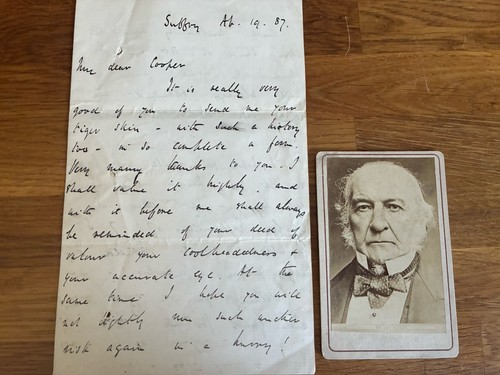 Ap. 19. 87.
My dear Cooper
It is really very
good of you to send me your
tiger skin - with such a history
too - in so complete a form.
Very many thanks to you. I
shall value it highly. and
with it before me shall always
be reminded of your deed of
valour your coolheadedness &
your accurate eye. At the
same time I hope you will
not lightly run such another
risk again in a hurry!